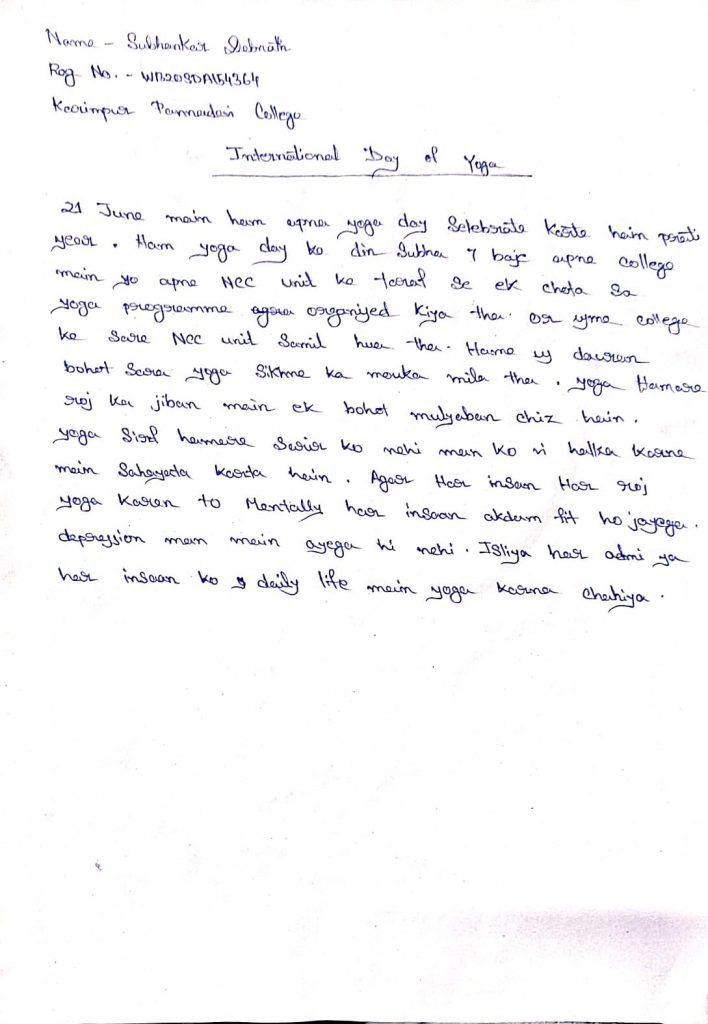 Name - Subhankar Debnath
Reg No. - WB20SDA154364
Karimpur Pannadevi College
International Day of Yoga
21 June main ham apna yoga day Selebrate Karte hain prati
year. Ham yoga day ko din Subha 7 baje apne college
main yo apne NCC unit ke taraf se ek chota sa
yoga programme organiyed Kiya tha. or yme college
ke Sare NCC unit Samil huea tha. Hame uy dawran
bohot Sara yoga Sikhne ka mouka mila tha. yoga Hamare
roj ka jiban main ek bohot mulyaban chiz hain.
yoga Sirf hamara Sarir ko nehi man ko vi halka karne
main Sahayada karta hain. Agar Har insan Har roj
yoga Karen to Mentally har insaan akdam fit ho jayega.
depression man main ayega hi nehi. Isliya har admi ya
har insaan ko daily life main yoga karna chahiya.